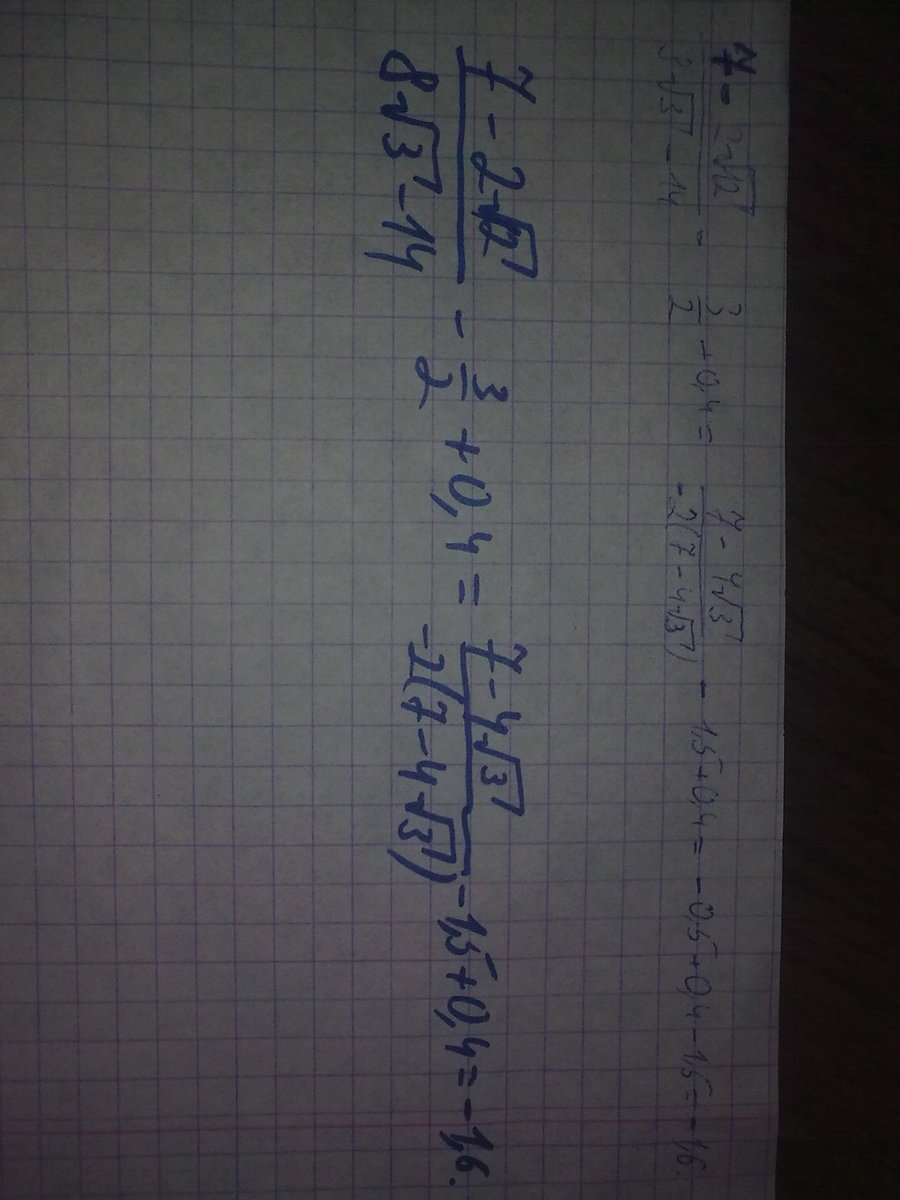 7-2√12/8√3-14 - 3/2 + 0,4 = 7-4√3/-2(7-4√3) - 1,5+0,4 = -0,5+0,4-1,5=-1,6.
7-2√12/8√3-14 - 3/2 + 0,4 = 7-4√3/-2(7-4√3) - 1,5+0,4 = -1,6.